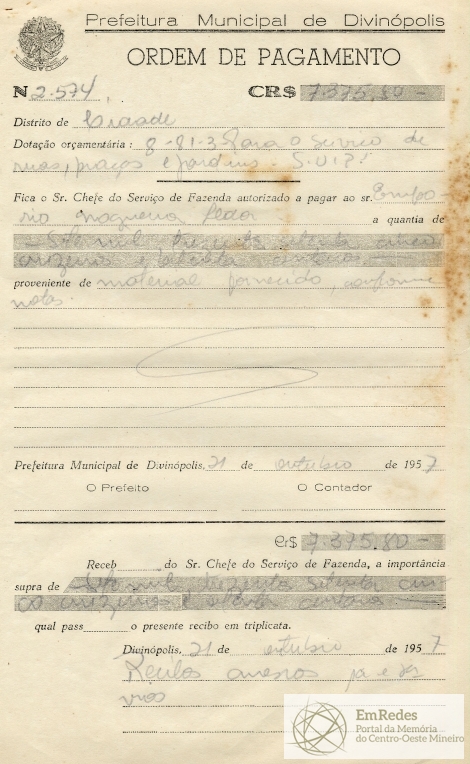 Prefeitura Municipal de Divinópolis
ORDEM DE PAGAMENTO
N 2.574, CR$ 7.375,80 -
Distrito de Cidade
Dotação orçamentária: 8-81-3 Para o serviço de
ruas, praças e jardins -
Fica o Sr. Chefe do Serviço de Fazenda autorizado a pagar ao sr. Empo-
rio Nogueira a quantia de
Sete mil trezentos setenta cinco
cruzeiros e oitenta centavos
proveniente de material fornecido, conforme
notas.
Prefeitura Municipal de Divinópolis, 21 de outubro de 1957
O Prefeito O Contador
Cr$ 7.375,80 -
Receb do Sr. Chefe do Serviço de Fazenda, a importância
supra de Sete mil trezentos setenta cin
co cruzeiros e oitenta centavos
qual pass o presente recibo em triplicata.
Divinópolis, 21 de outubro de 1957
Recibos anexos
EmRedes
Portal da Memória
do Centro-Oeste Mineiro